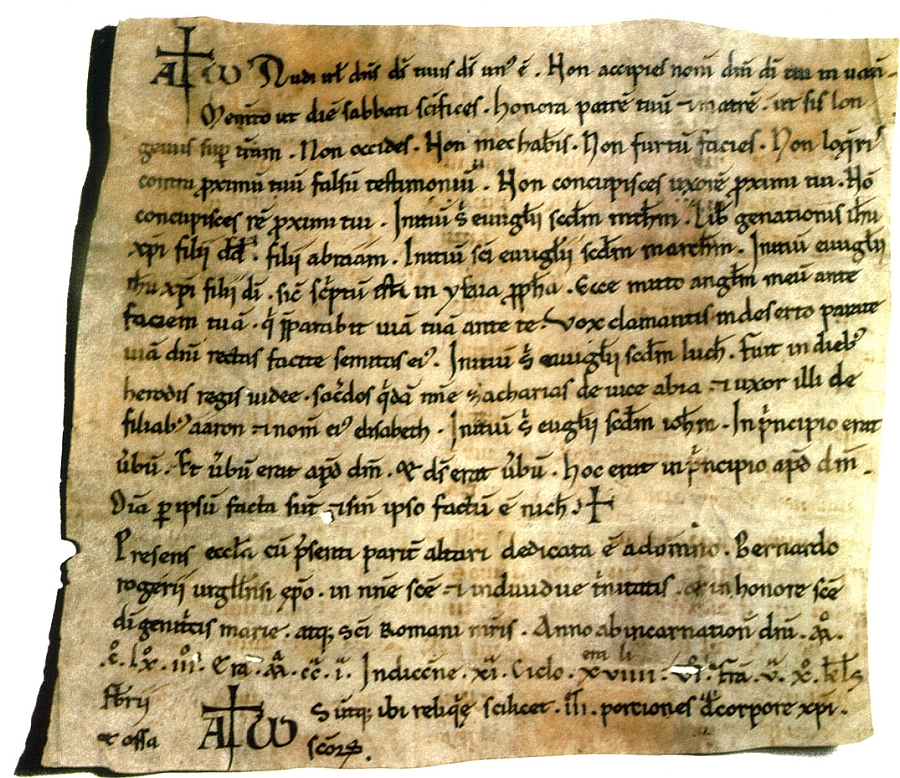 A ω Audi isrł dn̄s ds̄ tuus ds̄ unꝰ ē . Non accipies nom̄ dn̄i dī tui in uanū .
Memto ut diē sabbati sc̄ifices . honora patrē tuū ⁊ matrē . ut sis lon
geuus sup̄ t̄ram . Non occides . Non mechabis . Non furtū facies . Non loq̄ris
contra ꝓximū tuū falsū testimoniū . Non concupisces uxorē ꝓximi tui . Nō
concupisces rē ꝓximi tui . Initiū s̄ euuglīj scd̄m mth̄m . Lib̄ genationis ih̄u
xp̄i filij dd̄ . filij abraam . Initiū sc̄i euuglīj scd̄m march̄m . Initiū euuglīj
ih̄u xp̄i filij dī . sic̄ sc̄ptū est in ysaia ꝓph̄a . Ecce mitto angl̄m meū ante
faciem tuā . q̄ p̄parabit uiā tuā ante te . Vox clamantis in deserto parate
uiā dn̄i rectas facite semitas eiꝰ . Initiū s̄ euuglīj scd̄m luch̄ . Fuit in diebꝰ
herodis regis iudee . sac̄dos q̄dā nn̄e zacharias de uice abia . ⁊ uxor illi de
filiabꝰ aaron ⁊ nom̄ eiꝰ elisabeth . Initiū s̄ euglīj scd̄m ioh̄m . In p̄ncipio erat
ūbū . Et ūbū erat apd̄ dm̄ . & ds̄ erat ūbū . hoc erat in p̄ncipio apd̄ dm̄ .
Oīa p̄ ipsū facta sūt ⁊ sīn ipso factū ē nich̄ †
Presens eccl̄a cū p̄senti parit̄ altari dedicata ē a domino . Bernardo
rogerij urgllēnsi ep̄o . in nn̄e sc̄e ⁊ indiuidue t̄nitatis . & in honore sc̄e
dī genit̄cis marie . atq; sc̄i Romani mr̄is . Anno ab incarnationū dn̄i . M̊ .
. c̊ . lx̊ . iiī . Era . M̊ . cc̄ . i . Indiccn̄e . xi . Ciclo . xviiii . vi . fr̄ia . v . x̊ . kl̄s
Fb̄rij
A ω Sūtq; ibi reliq̄e scilicet . iii . portiones d̄ corpore xp̄i .
& ossa sc̄oꝝ .